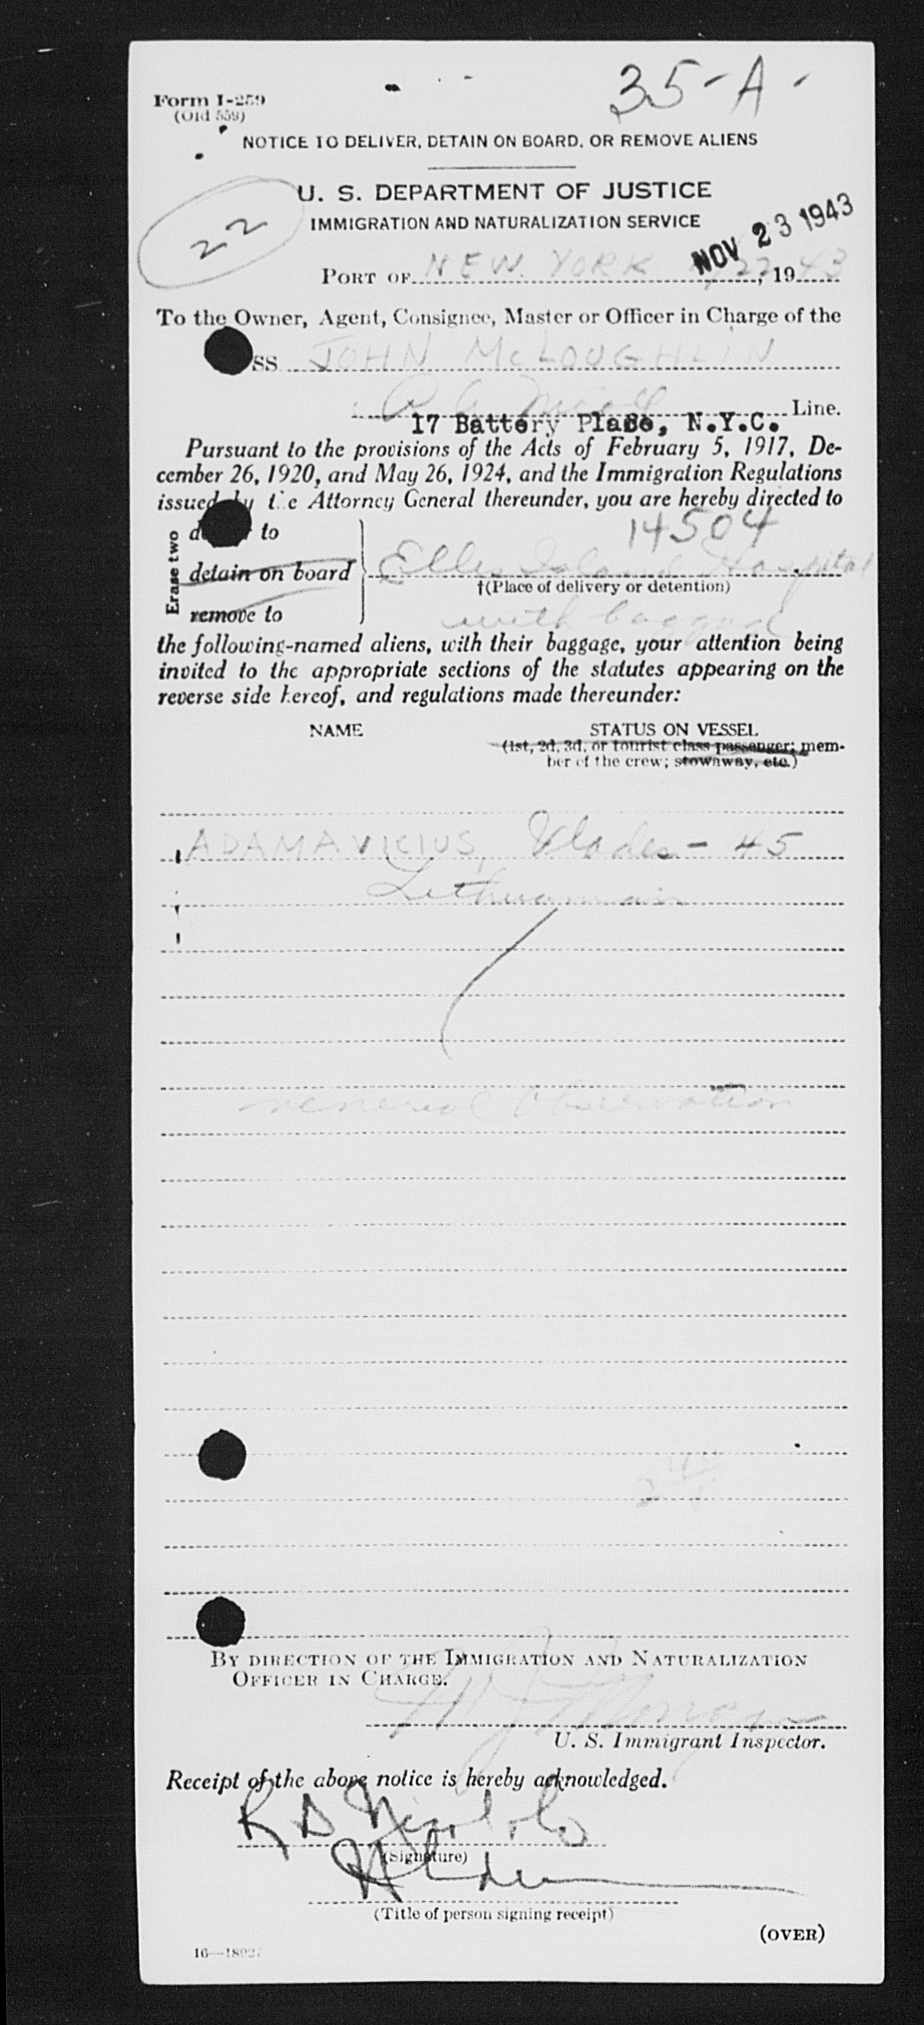 35-A-
Form I-259
(Old 559)
NOTICE TO DELIVER, DETAIN ON BOARD, OR REMOVE ALIENS
U. S. DEPARTMENT OF JUSTICE
22
IMMIGRATION AND NATURALIZATION SERVICE
NOV 23 1943
PORT OF NEW YORK 22, 1943
To the Owner, Agent, Consignee, Master or Officer in Charge of the
SS JOHN McLOUGHLIN
Line.
17 Battery Place, N.Y.C.
Pursuant to the provisions of the Acts of February 5, 1917, De-
cember 26, 1920, and May 26, 1924, and the Immigration Regulations
issued by the Attorney General thereunder, you are hereby directed to
14504
Erase two
to
detain on board
Ellis Island Hospital
†(Place of delivery or detention)
remove to
with baggage
the following-named aliens, with their baggage, your attention being
invited to the appropriate sections of the statutes appearing on the
reverse side hereof, and regulations made thereunder:
NAME STATUS ON VESSEL
(1st, 2d, 3d, or tourist class passenger; mem-
ber of the crew; stowaway, etc.)
ADAMAVICIUS, Vlades - 45
Lithuanian
venereal Observation
BY DIRECTION OF THE IMMIGRATION AND NATURALIZATION
OFFICER IN CHARGE.
U. S. Immigrant Inspector.
Receipt of the above notice is hereby acknowledged.
(Signature)
(Title of person signing receipt)
(OVER)